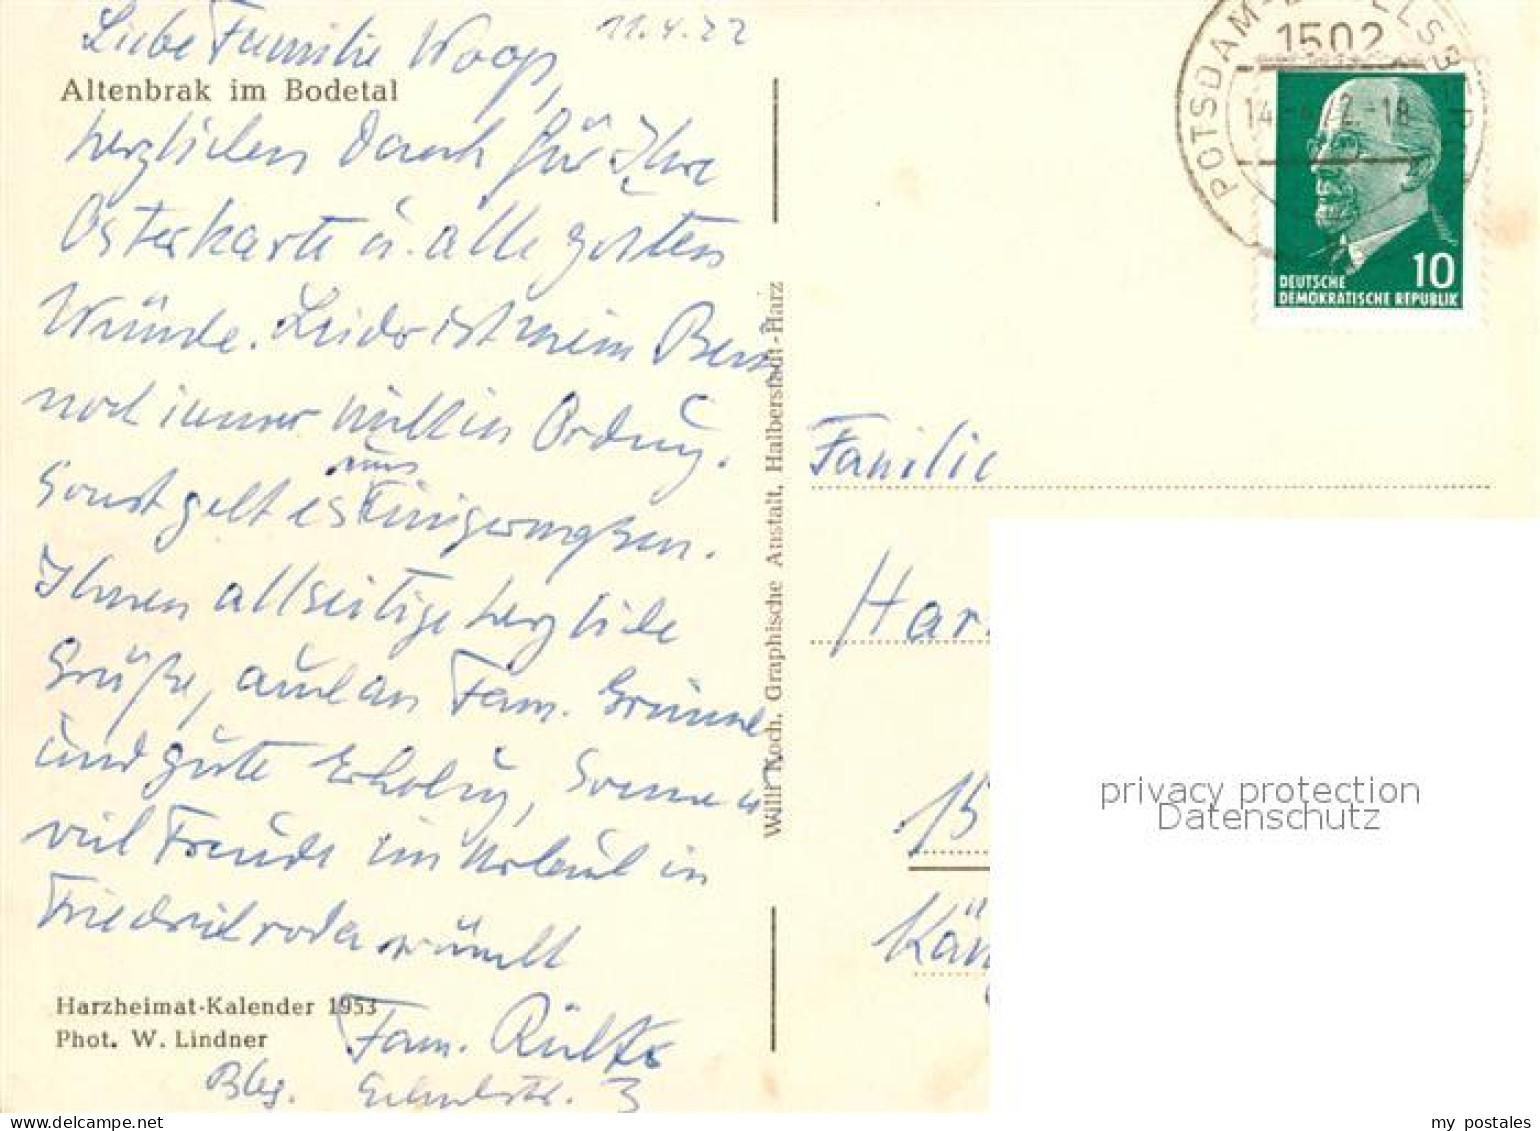 11.4.72
Liebe Familie Woop,
Altenbrak im Bodetal
herzlichen Dank für Ihre
Osterkarte u. alle guten
Wünsche. Leider ist mein Bein
noch immer nicht in Ordnung.
uns
Sonst geht es einigermaßen.
Ihnen allseitige herzliche
Grüße, auch an Fam.
und gute Erholung, Sonne u
viel Freude im Urlaub in
Friedrichroda wünscht
Harzheimat-Kalender 1953
Phot. W. Lindner
Fam.
Bbg. 3
Willi Koch, Graphische Anstalt, Halberstadt-Harz
POTSDAM-BABELSBERG
1502
14.-4.72.-18
10
DEUTSCHE
DEMOKRATISCHE REPUBLIK
Familie
Har
15
Kän
privacy protection
Datenschutz
my postales